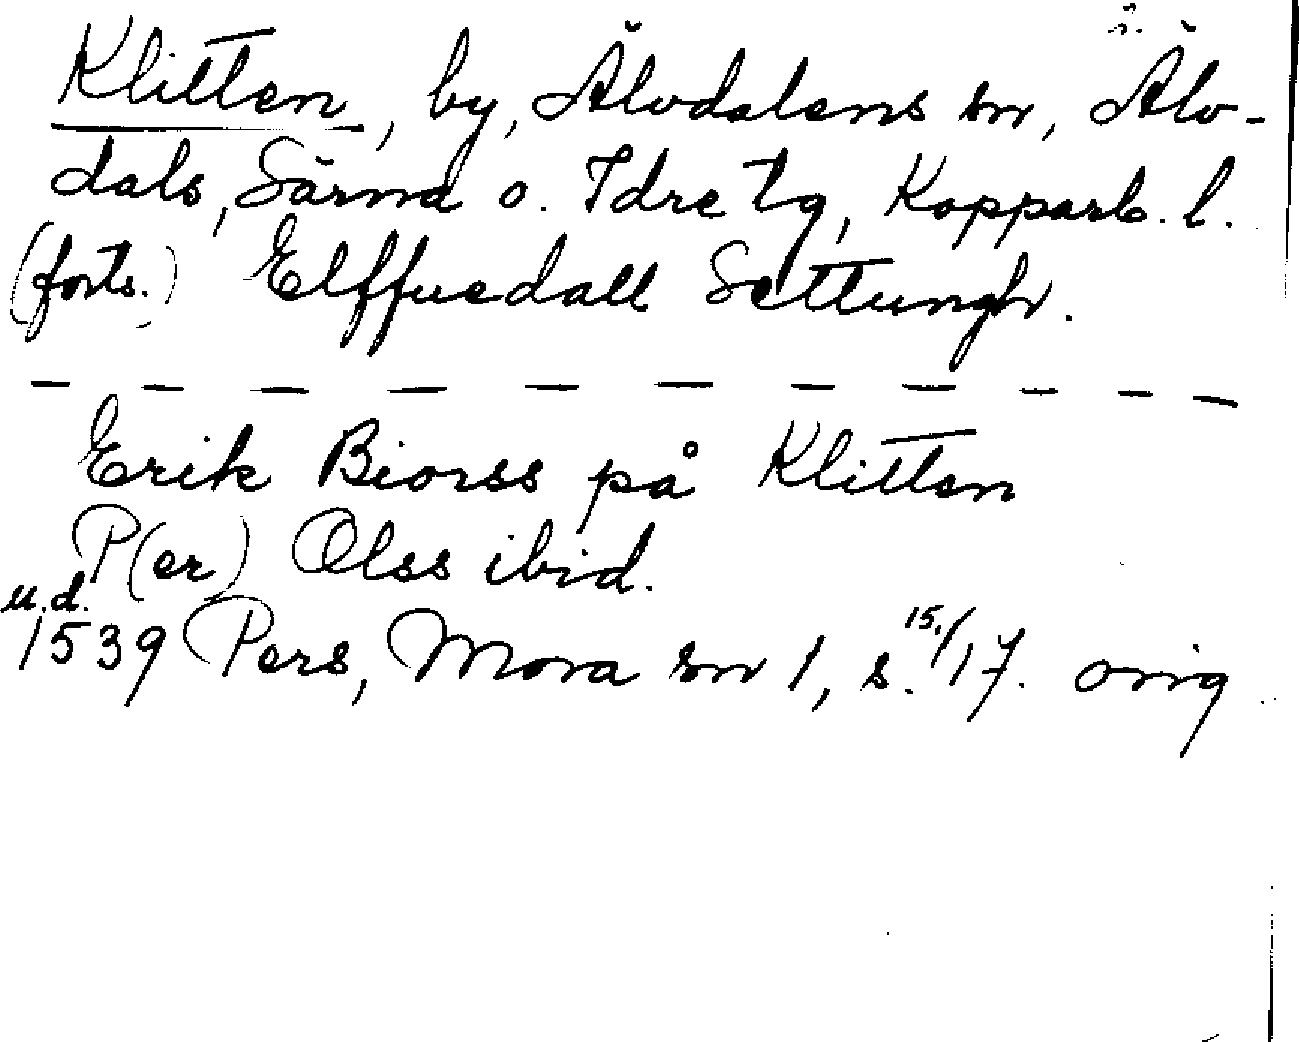 Klitten, by, Älvdalens sn, Älv-
dals, Särna o. Idre tg, Kopparb. l.
(forts.) Elffuedall Settungh.
— — — — — — — — — — —
Erik Biorss på Klitten
P(er) Olss ibid.
u.d.
1539 Pers, Mora sn 1, s. 15/17. orig